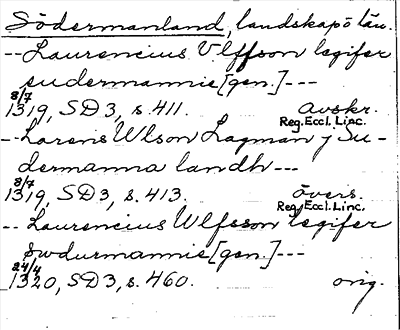 Södermanland, landskapö län.
-- Laurencius Vlffson legifer
sudermannie [gen.] ---
8/7
1319, SD 3, s. 411. avskr.
Reg. Eccl. Linc.
-- Larens Wlson Lagman j Su-
dermanna landh ---
8/7
1319, SD 3, s. 413. övers.
Reg. Eccl. Linc.
-- Laurencius Wlfsson legifer
swdurmannie [gen.] ---
24/4
1320, SD 3, s. 460. orig.